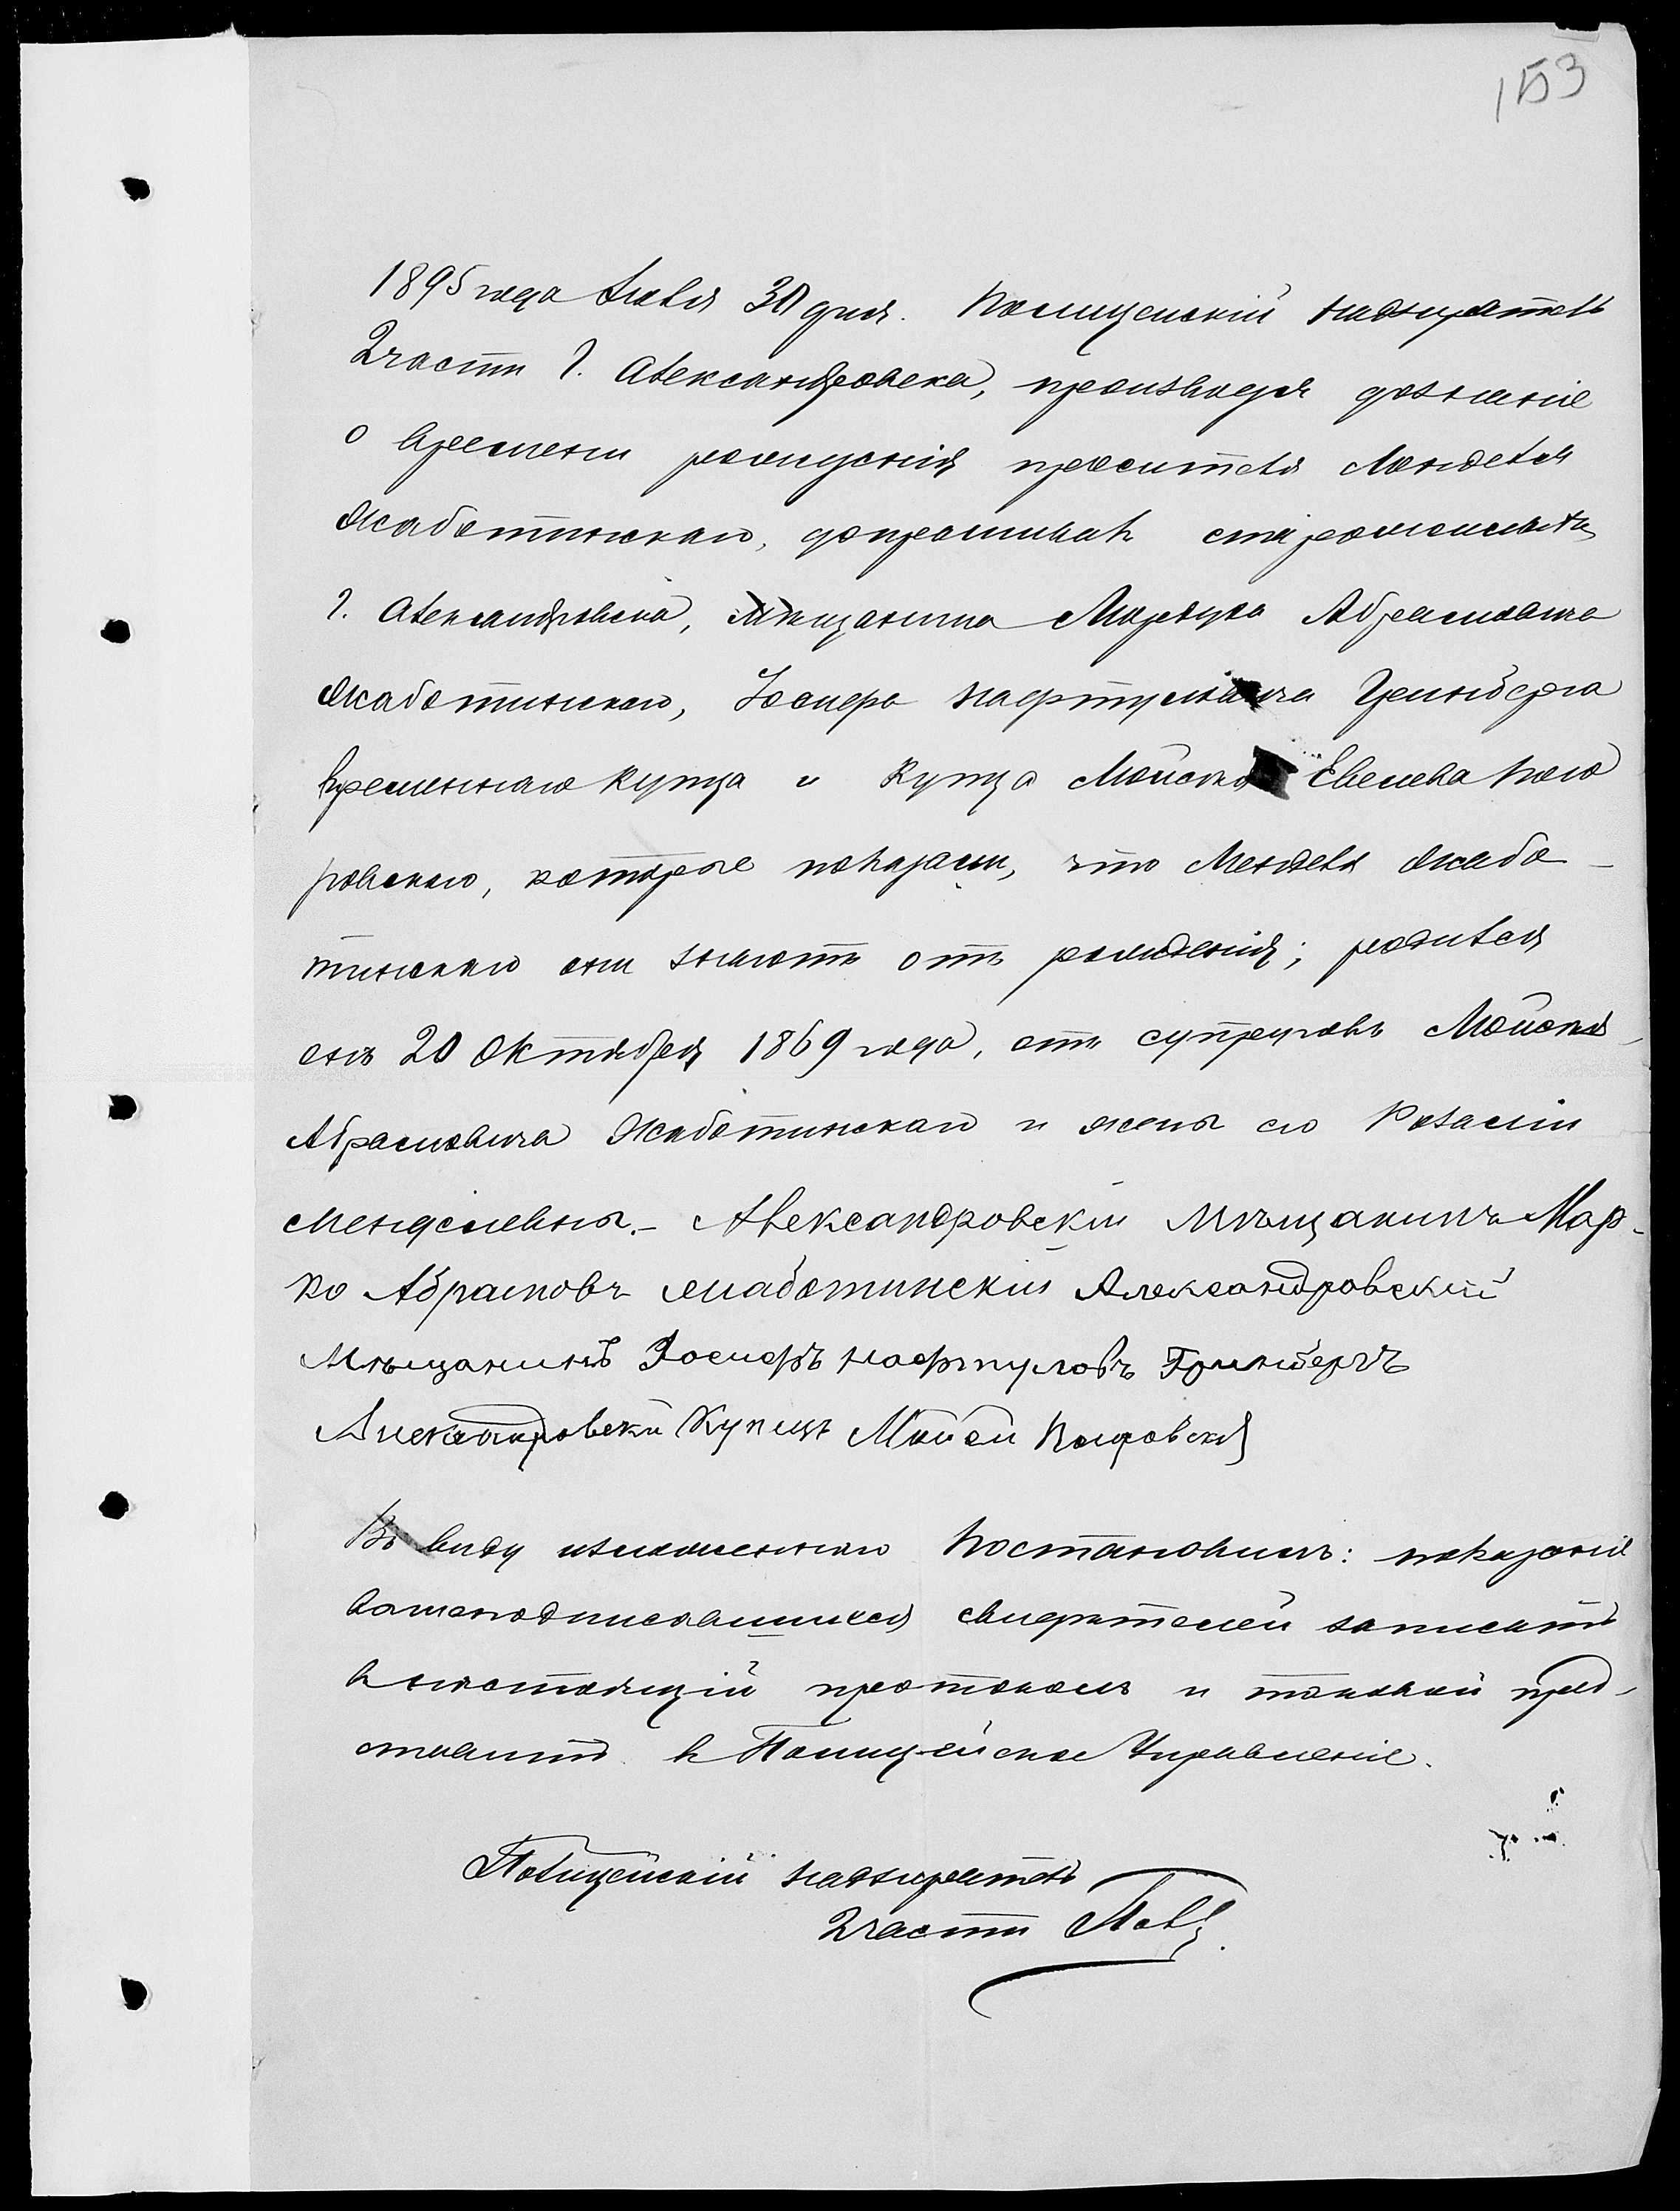 153
1895 года Июля 30 дня. Полицейскій надзиратель
2 части г. Александровска, производя дознаніе
о времени рожденія просителя Менделя
Жаботинскаго, допрашивалъ старожиловъ
г. Александровска, мѣщанина Марка Абрамовича
Жаботинскаго, Іосифа Нафтуловича Гринберга
временнаго купца и купца Мойсея Евелева Пого
ровскаго, которые показали, что Менделя Жабо-
тинскаго они знаютъ отъ рожденія; родился
онъ 20 Октября 1869 года, отъ супруговъ Мойсея
Абрамовича Жаботинскаго и жены его Розаліи
Менделевны. – Александровскій Мѣщанинъ Мар-
ко Абрамовъ Жаботинскій Александровскій
Мѣщанинъ Іосифъ Нафтуловъ Гринбергъ
Александровскій Купецъ Мойсей
Въ виду изложеннаго Постановилъ: показаніе
вышеподписавшихся свидѣтелей записать
въ настоящій протоколъ и таковой пред-
ставить въ Полицейское Управленіе.
Полицейскій надзиратель
2 части